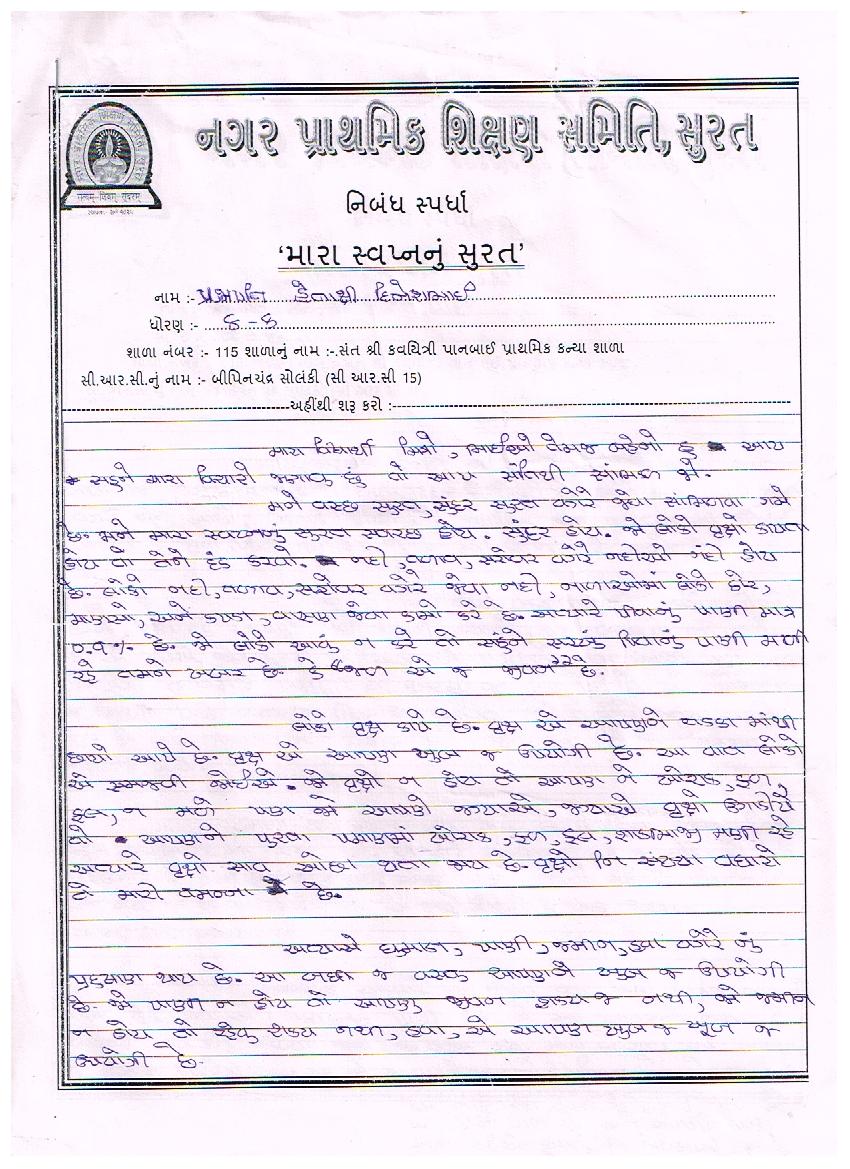 નગર પ્રાથમિક શિક્ષણ સમિતિ, સુરત
સત્યમ્ શિવમ્ સુંદરમ્
નિબંધ સ્પર્ધા
‘મારા સ્વપ્નનું સુરત’
નામ :- પ્રજાપતિ હેનાક્ષી દિનેશભાઈ
ધોરણ :- ૬-ક
શાળા નંબર :- 115 શાળાનું નામ :-.સંત શ્રી કવયિત્રી પાનબાઈ પ્રાથમિક કન્યા શાળા
સી.આર.સી.નું નામ :- બીપિનચંદ્ર સોલંકી (સી આર.સી 15)
અહીંથી શરૂ કરો :-
મારા વિદ્યાર્થી મિત્રો, ભાઈઓ તેમજ બહેનો હુ આપ
સહુને મારા વિચારો જણાવુ છું તો આપ શાંતિથી સાંભળ જો.
મને સ્વચ્છ સુરત, સુંદર સુરત વગેરે જેવા સાંભળવા ગમે
છે. મને મારા સ્વપ્નનું સુરત સ્વચ્છ હોય. સુંદર હોય. જે લોકો વૃક્ષો કાપતા
હોય તો તેને દંડ કરવો. નદી, તળાવ, સરોવર વગેરે નદીઓ ગંદી હોય
છે. લોકો નદી, તળાવ, સરોવર વગેરે જેવા નદી, નાળાઓમાં લોકો ઢોર,
માણસો, અને કપડા, વાસણ જેવા કામો કરે છે. અત્યારે પીવાનું પાણી માત્ર
૦.૧% છે. જો લોકો આવું ન કરે તો સહુને સરખું પિવાનું પાણી મળી
રહે તમને ખબર છે. કે "જળ એ જ જીવન" છે.
લોકો વૃક્ષ કાપે છે. વૃક્ષ એ આપણને તડકા માંથી
છાયો આપે છે. વૃક્ષ એ આપણ ખુબ જ ઉપયોગી છે. આ વાત લોકો
એ સમજવી જોઈએ. જો વૃક્ષો ન હોય તો આપણ ને ખોરાક, ફળ,
ફુલ, ન મળે પણ જો આપણે જગ્યાએ, જગ્યાએ વૃક્ષો ઉગાડીયે
તો આપણને પુરતા પ્રમાણમાં ખોરાક, ફળ, ફુલ, શાકભાજી મળી રહે
અત્યારે વૃક્ષો સાવ ઓછા થતા જાય છે. વૃક્ષો નિ સંખ્યા વધારો
તે મારી તમન્ના છે.
અત્યારે ધુમાડા, પાણી, જમીન, હવા વગેરે નું
પ્રદુષણ થાય છે. આ બધી જ વસ્તુ આપણને ખુબ જ ઉપયોગી
છે. જો પાણી ન હોય તો આપણુ જીવન શક્ય જ નથી, જો જમીન
ન હોય તો રહેવુ શક્ય નથી, હવા, એ આપણ ખુબ જ ખૂબ જ
ઉપયોગી છે.